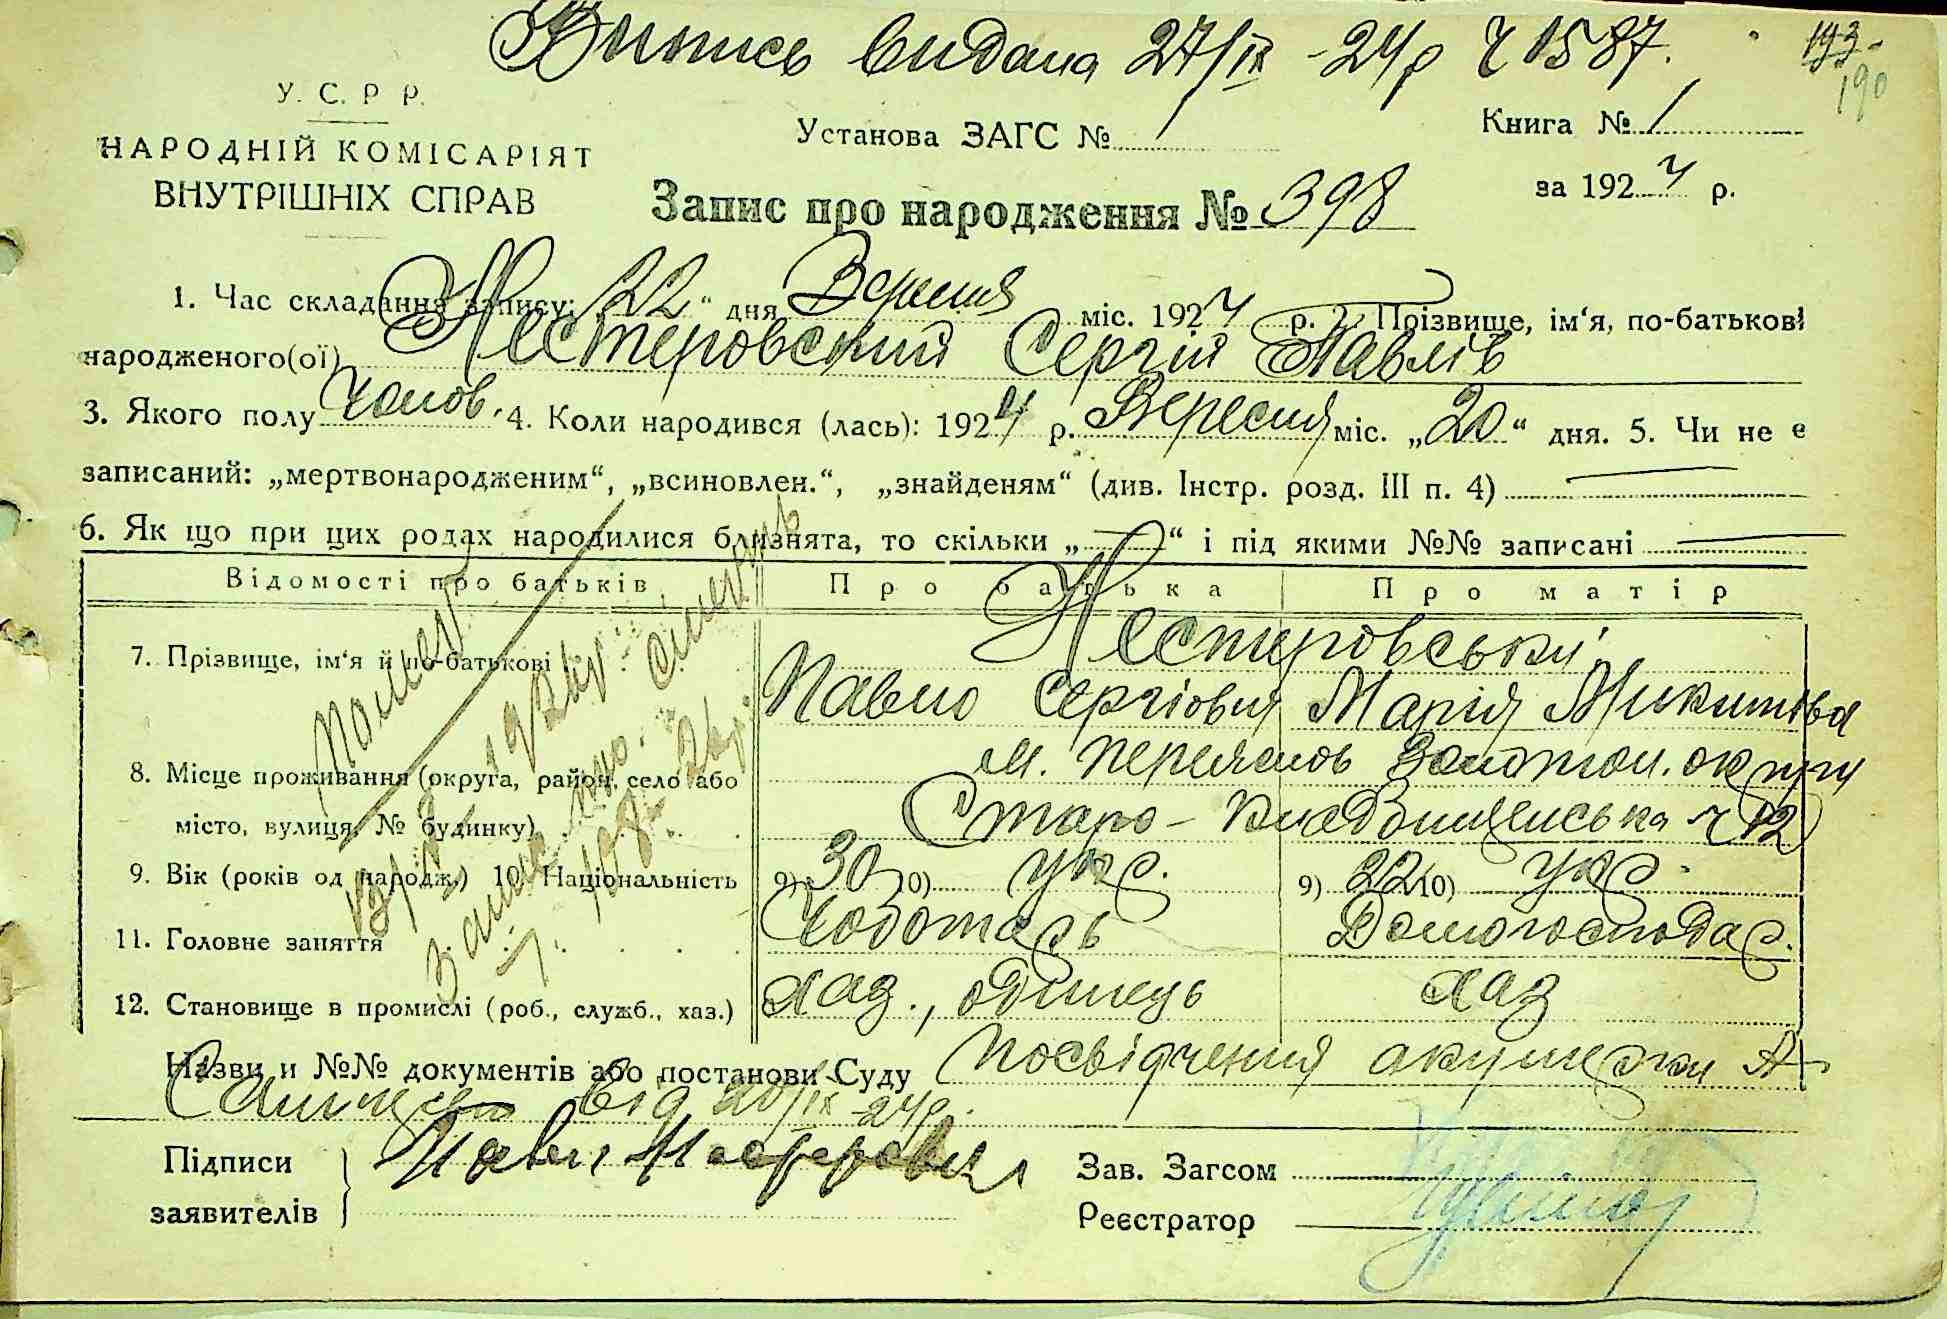 Випись видана 27/IX -24р Ч 1587.
193
190
У. С. Р. Р.
НАРОДНІЙ КОМІСАРІЯТ
ВНУТРІШНІХ СПРАВ
Установа ЗАГС № 1
Книга № 1
за 1924 р.
Запис про народження № 398
1. Час складання запису: 22 " дня Вересня міс. 1924 р. 2. Прізвище, ім'я, по-батькові
народженого(ої) Нестеровский Сергій Павлів
3. Якого полу чолов. 4. Коли народився (лась): 1924 р. Вересня міс. „20" дня. 5. Чи не є
записаний: „мертвонародженим", „всиновлен.", „знайденям" (див. Інстр. розд. III п. 4)
6. Як що при цих родах народилися близнята, то скільки „ — " і під якими №№ записані —
Відомості про батьків Про батька Про матір
7. Прізвище, ім'я й по-батькові Нестеровські
Павло Сергіович Марія Микитівна
8. Місце проживання (округа, район, село або м. Переяслов Золотон. округи
місто, вулиця, № будинку) Старо- ч 12
9. Вік (років од народж.) 10. Національність 9) 30 10) укр. 9) 22 10) укр.
11. Головне заняття Чоботарь Домогосподар.
12. Становище в промислі (роб., служб., хаз.) хаз., одинець хаз
Назви и №№ документів або постанови Суду Посвідчення акушерки А.
від 20/IX -24р.
Підписи
заявителів
Павло Нестеровский
Зав. Загсом
Реєстратор
Помер
1926р.
смерть
ч. 108 26р.